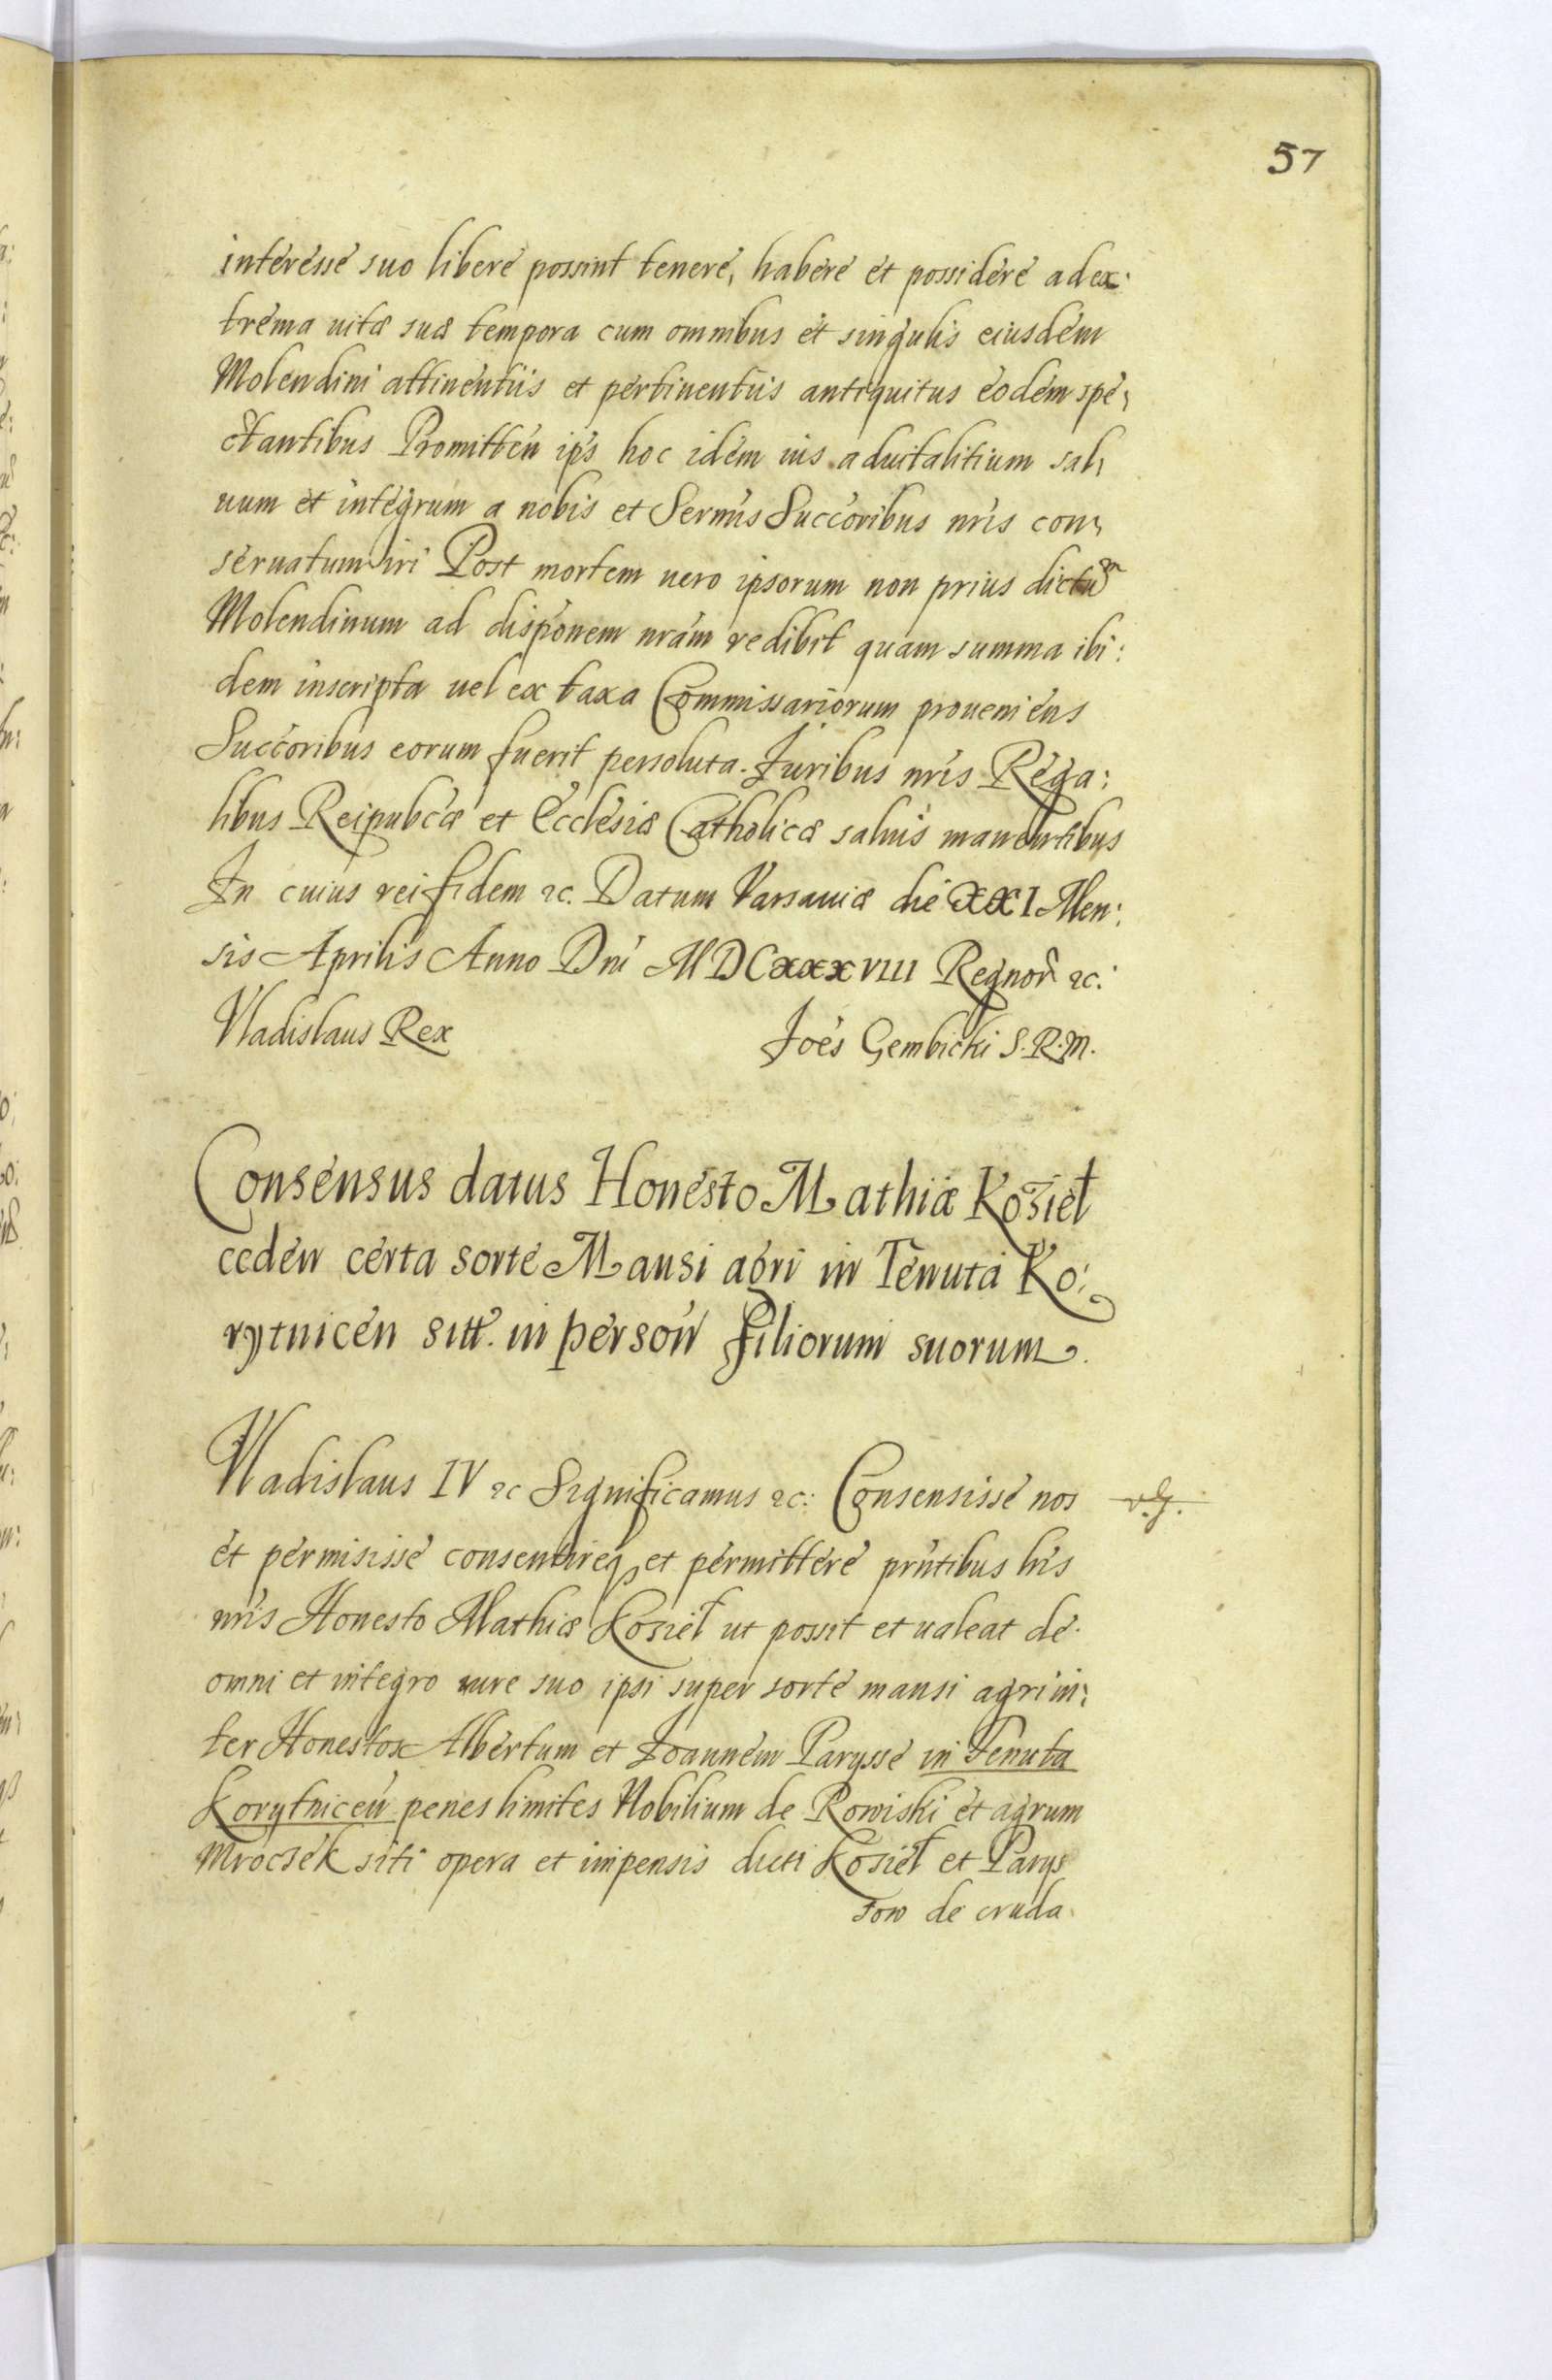 57
interesse suo libere possint tenere, habere et possidere ad ex:
trema uitæ suæ tempora cum omnibus et singulis eiusdem
Molendini attinentiis et pertinentiis antiquitus eodem spe,
ctantibus Promitten ips hoc idem ius aduitalitium sal,
uum et integrum a nobis et Sermis Succoribus nris con,
seruatum iri Post mortem uero ipsorum non prius dictum
Molendinum ad disponem nram redibit quam summa ibi:
dem inscripta uel ex taxa Commissariorum proueniens
Succoribus eorum fuerit persoluta. Juribus nris Rega:
libus Reipubcæ et Ecclesiæ Catholicæ saluis manentibus
In cuius rei fidem &c. Datum Varsauiæ die XXI Men:
sis Aprilis Anno Dni MDCXXXVIII Regnor &c.
Vladislaus Rex Joes Gembicki S.R.M.
Consensus datus Honesto Mathiæ Kozieł
ceden certa sorte Mansi agri in Tenuta Ko:
rytnicen sitt. in person filiorum suorum.
Vladislaus IV &c Significamus &c: Consensisse nos
et permisisse consentireq et permittere prntibus lris
nris Honesto Mathiæ Kozieł ut possit et ualeat de
omni et integro iure suo ipsi super sorte mansi agri in:
ter Honestos Albertum et Joannem Parysse in Tenuta
Korytnicen penes limites Nobilium de Rowiski et agrum
Mroczek siti opera et impensis dicti Kozieł et Parys
sow de cruda